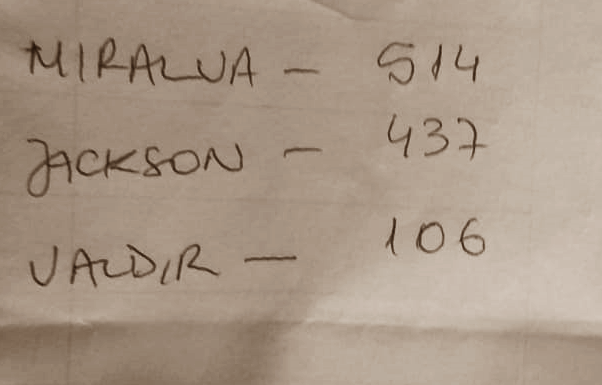 MIRALVA - 514
JACKSON - 437
VALDIR - 106